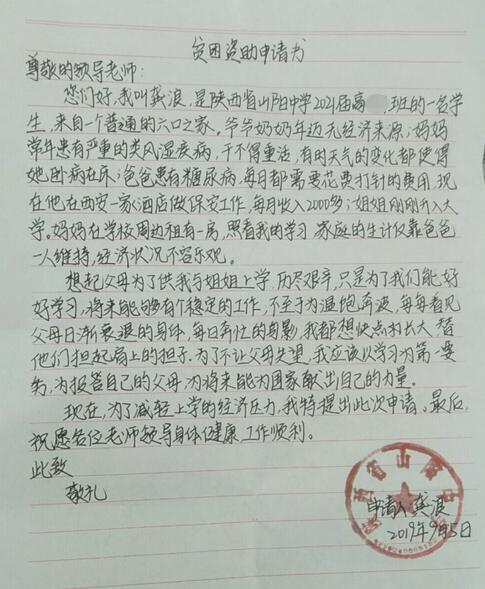 贫困资助申请书
尊敬的领导老师：
您们好，我叫龚浪，是陕西省山阳中学2021届高 班的一名学
生，来自一个普通的六口之家。爷爷奶奶年迈无经济来源；妈妈
常年患有严重的类风湿疾病，干不得重活，有时天气的变化都使得
她卧病在床；爸爸患有糖尿病，每月都需要花费打针的费用，现
在他在西安一家酒店做保安工作，每月收入2000多；姐姐刚刚升入大
学。妈妈在学校周边租有一房，照看我的学习，家庭的生计仅靠爸爸
一人维持，经济状况不容乐观。
想起父母为了供我与姐姐上学，历尽艰辛，只是为了我们能好
好学习，将来能够有个稳定的工作，不至于为温饱奔波，每每看见
父母日渐衰退的身体，每日奔忙的身影，我都想快点村长大，替
他们担起肩上的担子。为了不让父母失望，我应该以学习为第一要
务，为报答自己的父母，为将来能为国家献出自己的力量。
现在，为了减轻上学的经济压力，我特提出此次申请。最后，
祝愿各位老师领导身体健康，工作顺利。
此致
敬礼
申请人 龚浪
2019年9月5日